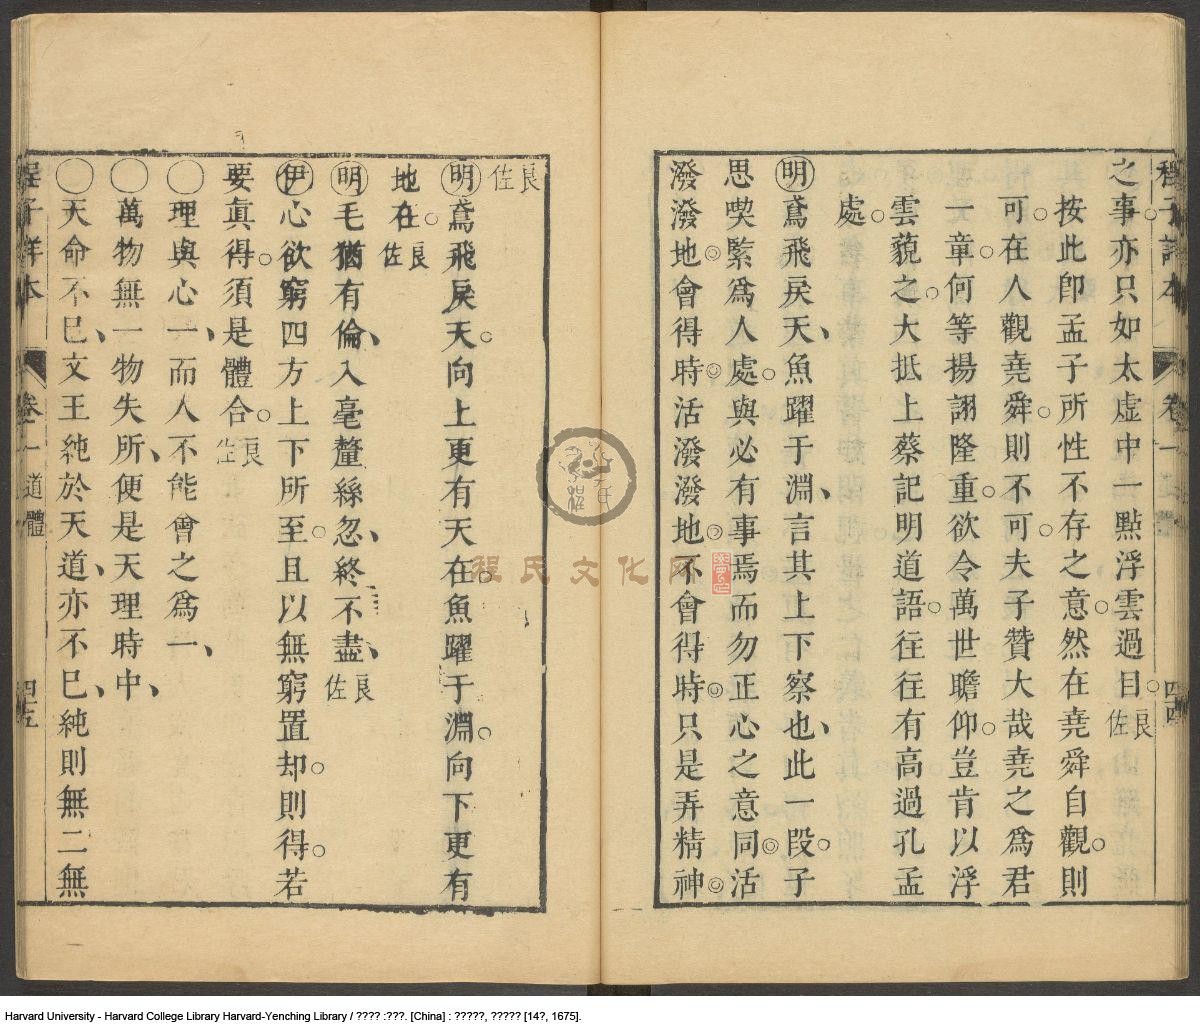 程子詳本 卷一 四四
之事亦只如太虛中一點浮雲過目良佐
按此卽孟子所性不存之意然在堯舜自觀則
可在人觀堯舜則不可夫子贊大哉堯之爲君
一章何等揚詡隆重欲令萬世瞻仰豈肯以浮
雲藐之大抵上蔡記明道語往往有高過孔孟
處
明鳶飛戾天魚躍于淵言其上下察也此一段子
思喫緊爲人處與必有事焉而勿正心之意同活
潑潑地會得時活潑潑地不會得時只是弄精神
良佐
明鳶飛戾天向上更有天在魚躍于淵向下更有
地在良佐
明毛猶有倫入毫釐絲忽終不盡良佐
伊心欲窮四方上下所至且以無窮置却則得若
要眞得須是體合良佐
〇理與心一而人不能會之爲一
〇萬物無一物失所便是天理時中
〇天命不已文王純於天道亦不已純則無二無
程子詳本 卷一 道體 四五
程氏文化网
Harvard University - Harvard College Library Harvard-Yenching Library / ???? :???. [China] : ?????, ????? [14?, 1675].